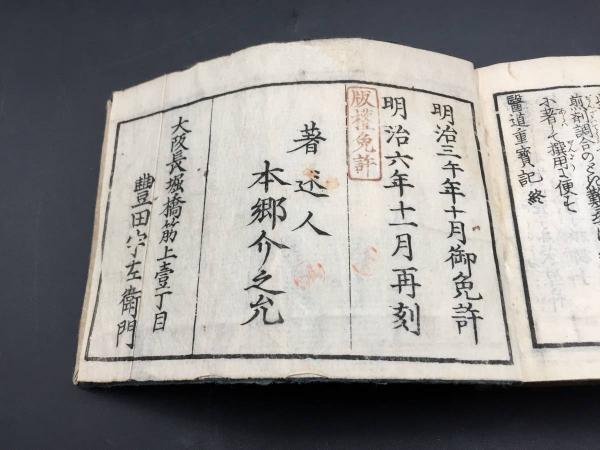 煎剤調合の
不著して撰用に便す
醫道重寳記 終
明治三午年十月御免許
明治六年十一月再刻
版權免許
著述人
本郷介之允
大阪長堀橋筋上壹丁目
豐田宇左衛門